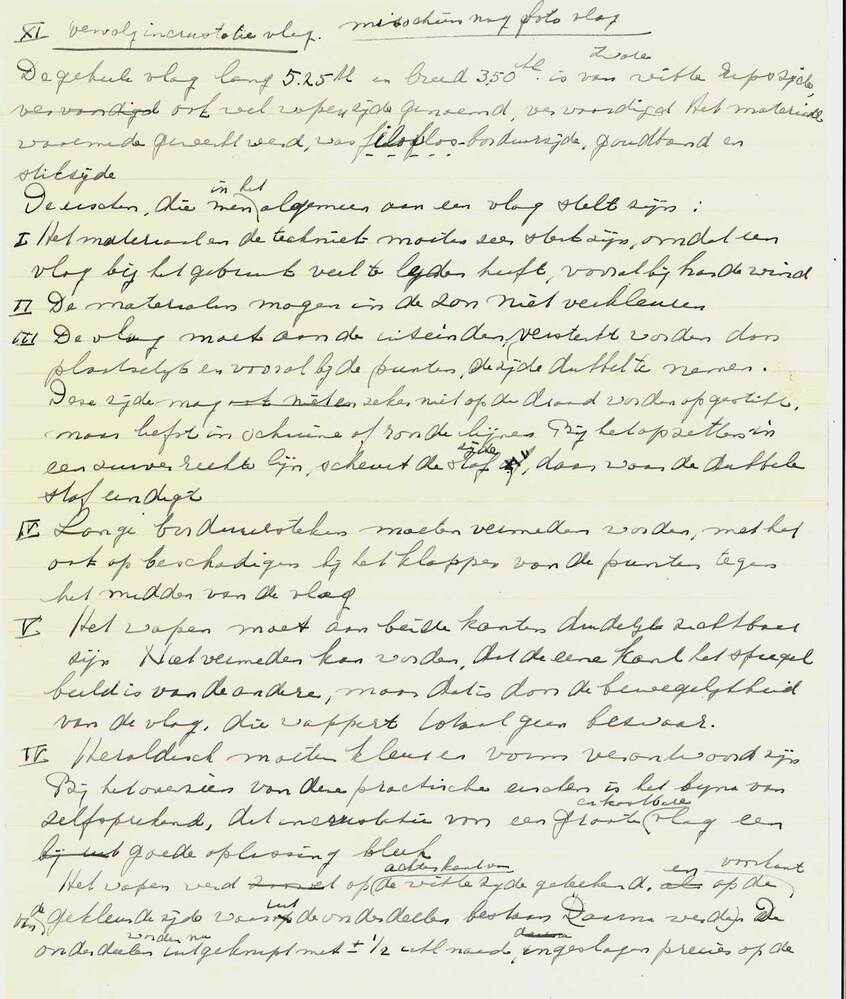 XI vervolg incrustatie vlag. misschien nog foto vlag
De geheele vlag lang 5.25 M en breed 3,50 M. is van witte zware zijde,
vervaardigd ook wel wapenzijde genoemd, vervaardigd Het materiaal
waarmede gewerkt werd, was filoflos-borduurzijde, goudband en
stikzijde
De eischen, die men in het algemeen aan een vlag stelt zijn:
I Het materiaal en de techniek moeten zeer sterk zijn, omdat een
vlag bij het gebruik veel te lyden heeft, vooral by harde wind
II De materialen mogen in de zon niet verkleuren
III De vlag moet aan de uiteinden, versterkt worden door
plaatselyk en vooral by de punten, de zijde dubbel te nemen.
Deze zijde mag zeker niet op de draad worden opgestikt,
maar liefst in schuine of ronde lijnen Bij het opzetten in
een zuiver rechte lijn, scheurt de zijde stof af, daar waar de dubbele
stof eindigt
IV Lange borduursteken moeten vermeden worden, met het
oog op beschadigen bij het klappen van de punten tegen
het midden van de vlag
V Het wapen moet aan beide kanten duidelyk zichtbaar
zijn Niet vermeden kan worden, dat de eene kant het spiegel
beeld is van de andere, maar dat is door de bewegelykheid
van de vlag, die wappert totaal geen bezwaar.
IV Heraldisch moeten kleur en vorm verantwoord zijn
Bij het overzien van deze practische eischen is het byna van
zelfsprekend, dat incrustatie voor een groote en kostbare vlag een
bij uit goede oplossing bleek
Het wapen werd op de achterkant van witte zijde geteekend, als en op de voorkant
van de gekleurde zijde waaruit de onderdeelen bestaan Daarna werden De
onderdeelen worden nu uitgeknipt met ± 1/2 cM naad, daarna ingeslagen precies op de